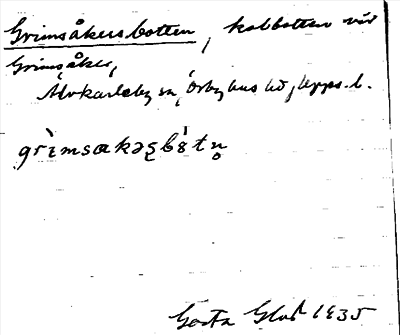 Grimsåkersbotten, kolbotten vid
Grimsåker,
Älvkarleby sn, Örbyhus hd, Upps. l.
grìmsakəʂbòtn̥
Gösta 1935